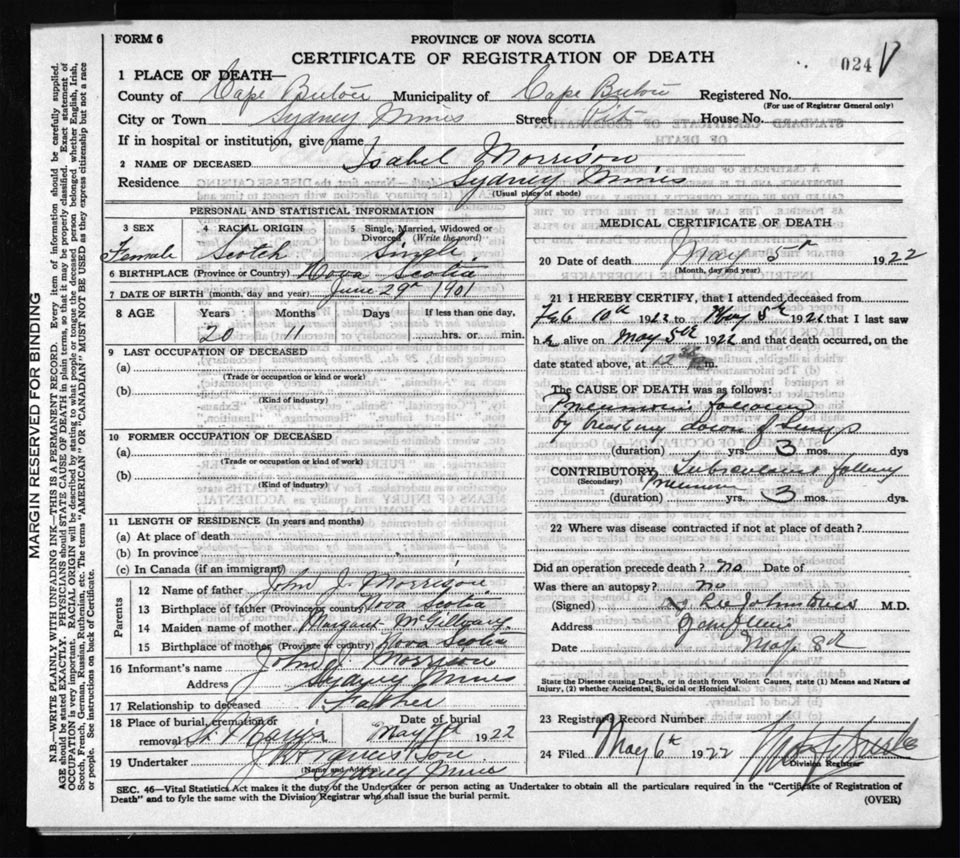 FORM 6
PROVINCE OF NOVA SCOTIA
CERTIFICATE OF REGISTRATION OF DEATH
024
1 PLACE OF DEATH—
County of Cape Breton Municipality of Cape Breton Registered No.
(For use of Registrar General only)
City or Town Sydney Mines Street Pitt House No.
If in hospital or institution, give name
2 NAME OF DECEASED Isabel Morrison
Residence Sydney Mines
(Usual place of abode)
PERSONAL AND STATISTICAL INFORMATION
3 SEX 4 RACIAL ORIGIN 5 Single, Married, Widowed or Divorced (Write the word)
Female Scotch Single
6 BIRTHPLACE (Province or Country) Nova Scotia
7 DATE OF BIRTH (month, day and year) June 29th 1901
8 AGE Years Months Days If less than one day,
20 11 hrs. or min.
9 LAST OCCUPATION OF DECEASED
(a)
(Trade or occupation or kind or work)
(b)
(Kind of industry)
10 FORMER OCCUPATION OF DECEASED
(a)
(Trade or occupation or kind of work)
(b)
(Kind of industry)
11 LENGTH OF RESIDENCE (In years and months)
(a) At place of death
(b) In province
(c) In Canada (if an immigrant)
Parents
12 Name of father John J. Morrison
13 Birthplace of father (Province or country) Nova Scotia
14 Maiden name of mother Margaret McGillvary
15 Birthplace of mother (Province or country) Nova Scotia
16 Informant's name John J. Morrison
Address Sydney Mines
17 Relationship to deceased Father
18 Place of burial, cremation or removal St. Mary's Date of burial May 7th 1922
19 Undertaker
(Name and Address) Sydney Mines
MEDICAL CERTIFICATE OF DEATH
20 Date of death May 5th 1922
(Month, day and year)
21 I HEREBY CERTIFY, that I attended deceased from
Feb 10th 1922 to May 5th 1922 that I last saw
h alive on May 5th 1922 and that death occurred, on the
date stated above, at 12 m.
The CAUSE OF DEATH was as follows:
Pneumonia following
by breaking down of Lungs
(duration) yrs. 3 mos. dys
CONTRIBUTORY Tuberculosis following
(Secondary) Pneumonia
(duration) yrs. 3 mos. dys.
22 Where was disease contracted if not at place of death?
Did an operation precede death? no Date of
Was there an autopsy? no
(Signed) M.D.
Address
Date May 8th
State the Disease causing Death, or in death from Violent Causes, state (1) Means and Nature of Injury, (2) whether Accidental, Suicidal or Homicidal.
23 Registrars Record Number
24 Filed May 6th 1922
Division Registrar
SEC. 46—Vital Statistics Act makes it the duty of the Undertaker or person acting as Undertaker to obtain all the particulars required in the "Certificate of Registration of
Death" and to fyle the same with the Division Registrar who shall issue the burial permit.
(OVER)
MARGIN RESERVED FOR BINDING
N.B.—WRITE PLAINLY WITH UNFADING INK—THIS IS A PERMANENT RECORD. Every item of information should be carefully supplied.
AGE should be stated EXACTLY. PHYSICIANS should STATE CAUSE OF DEATH in plain terms, so that it may be properly classified. Exact statement of
OCCUPATION is very important. RACIAL ORIGIN will be described by stating to what people or tongue the deceased person belonged whether English, Irish,
Scotch, French, German, Russian, Ruthenian, etc. The terms "AMERICAN" OR "CANADIAN" MUST NOT BE USED as they express citizenship but not a race
or people. See instructions on back of Certificate.